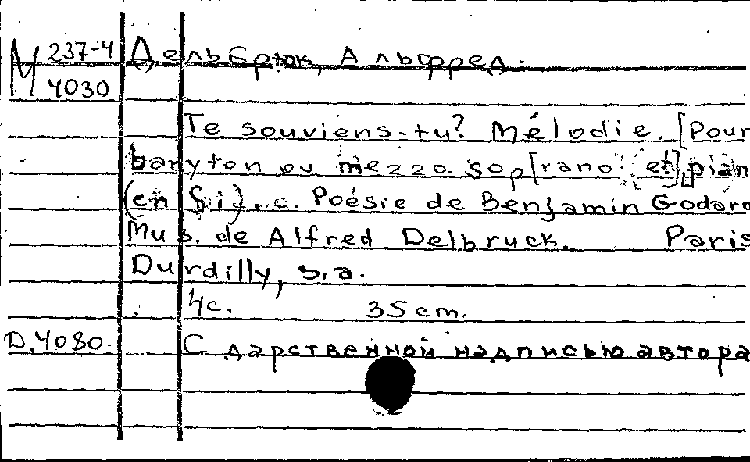 М 237-4 Дельбрюк, Альфред.
4030
Te souviens-tu? Mélodie. [Pour
baryton ou mezzo sop[rano et] pian
(en Si). c. Poésie de Benjamin Godard
Mus. de Alfred Delbruck. Paris
Durdilly, s.a.
4c. 35 cm.
D.4080. С дарственной надписью автора